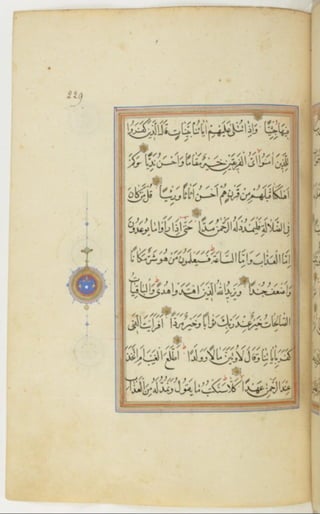 229
فيها جثيا وإذا تتلى عليهم آياتنا بينات قال الذين كفروا
للذين آمنوا أي الفريقين خير مقاما وأحسن نديا وكم
أهلكنا قبلهم من قرن هم أحسن أثاثا ورئيا قل من كان
في الضلالة فليمدد له الرحمن مدا حتى إذا رأوا ما يوعدون
إما العذاب وإما الساعة فسيعلمون من هو شر مكانا
وأضعف جندا ويزيد الله الذين اهتدوا هدى والباقيات
الصالحات خير عند ربك ثوابا وخير مردا أفرأيت الذي
كفر بآياتنا وقال لأوتين مالا وولدا أطلع الغيب أم اتخذ
عند الرحمن عهدا كلا سنكتب ما يقول ونمد له من العذاب